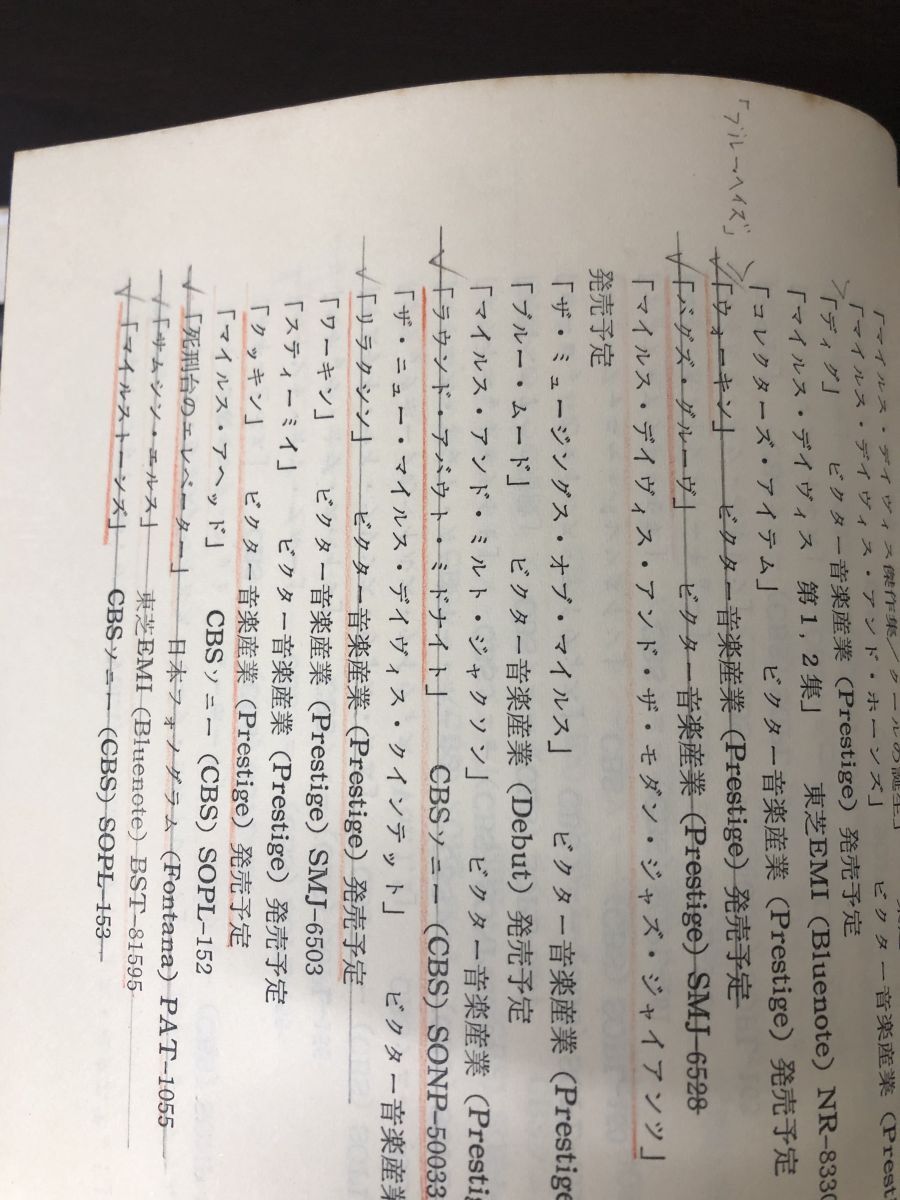 「マイルス・デイヴィス傑作集／クールの誕生」
「マイルス・デイヴィス・アンド・ホーンズ」　ビクター音楽産業（Prest
「ディグ」　ビクター音楽産業（Prestige）発売予定
「マイルス・デイヴィス　第1,2集」　東芝EMI（Bluenote）NR-833
「コレクターズ・アイテム」　ビクター音楽産業（Prestige）発売予定
「ブルーヘイズ」
「ウォーキン」　ビクター音楽産業（Prestige）発売予定
「バグズ・グルーヴ」　ビクター音楽産業（Prestige）SMJ-6528
「マイルス・デイヴィス・アンド・ザ・モダン・ジャズ・ジャイアンツ」
発売予定
「ザ・ミュージングス・オブ・マイルス」　ビクター音楽産業（Prestige
「ブルー・ムード」　ビクター音楽産業（Debut）発売予定
「マイルス・アンド・ミルト・ジャクソン」　ビクター音楽産業（Presti
「ラウンド・アバウト・ミドナイト」　CBSソニー（CBS）SONP-50033
「ザ・ニュー・マイルス・デイヴィス・クインテット」　ビクター音楽産業
「リラクシン」　ビクター音楽産業（Prestige）発売予定
「ワーキン」　ビクター音楽産業（Prestige）SMJ-6503
「スティーミイ」　ビクター音楽産業（Prestige）発売予定
「クッキン」　ビクター音楽産業（Prestige）発売予定
「マイルス・アヘッド」　CBSソニー（CBS）SOPL-152
「死刑台のエレベーター」　日本フォノグラム（Fontana）PAT-1055
「サムシン・エルス」　東芝EMI（Bluenote）BST-81595
「マイルストーンズ」　CBSソニー（CBS）SOPL-153